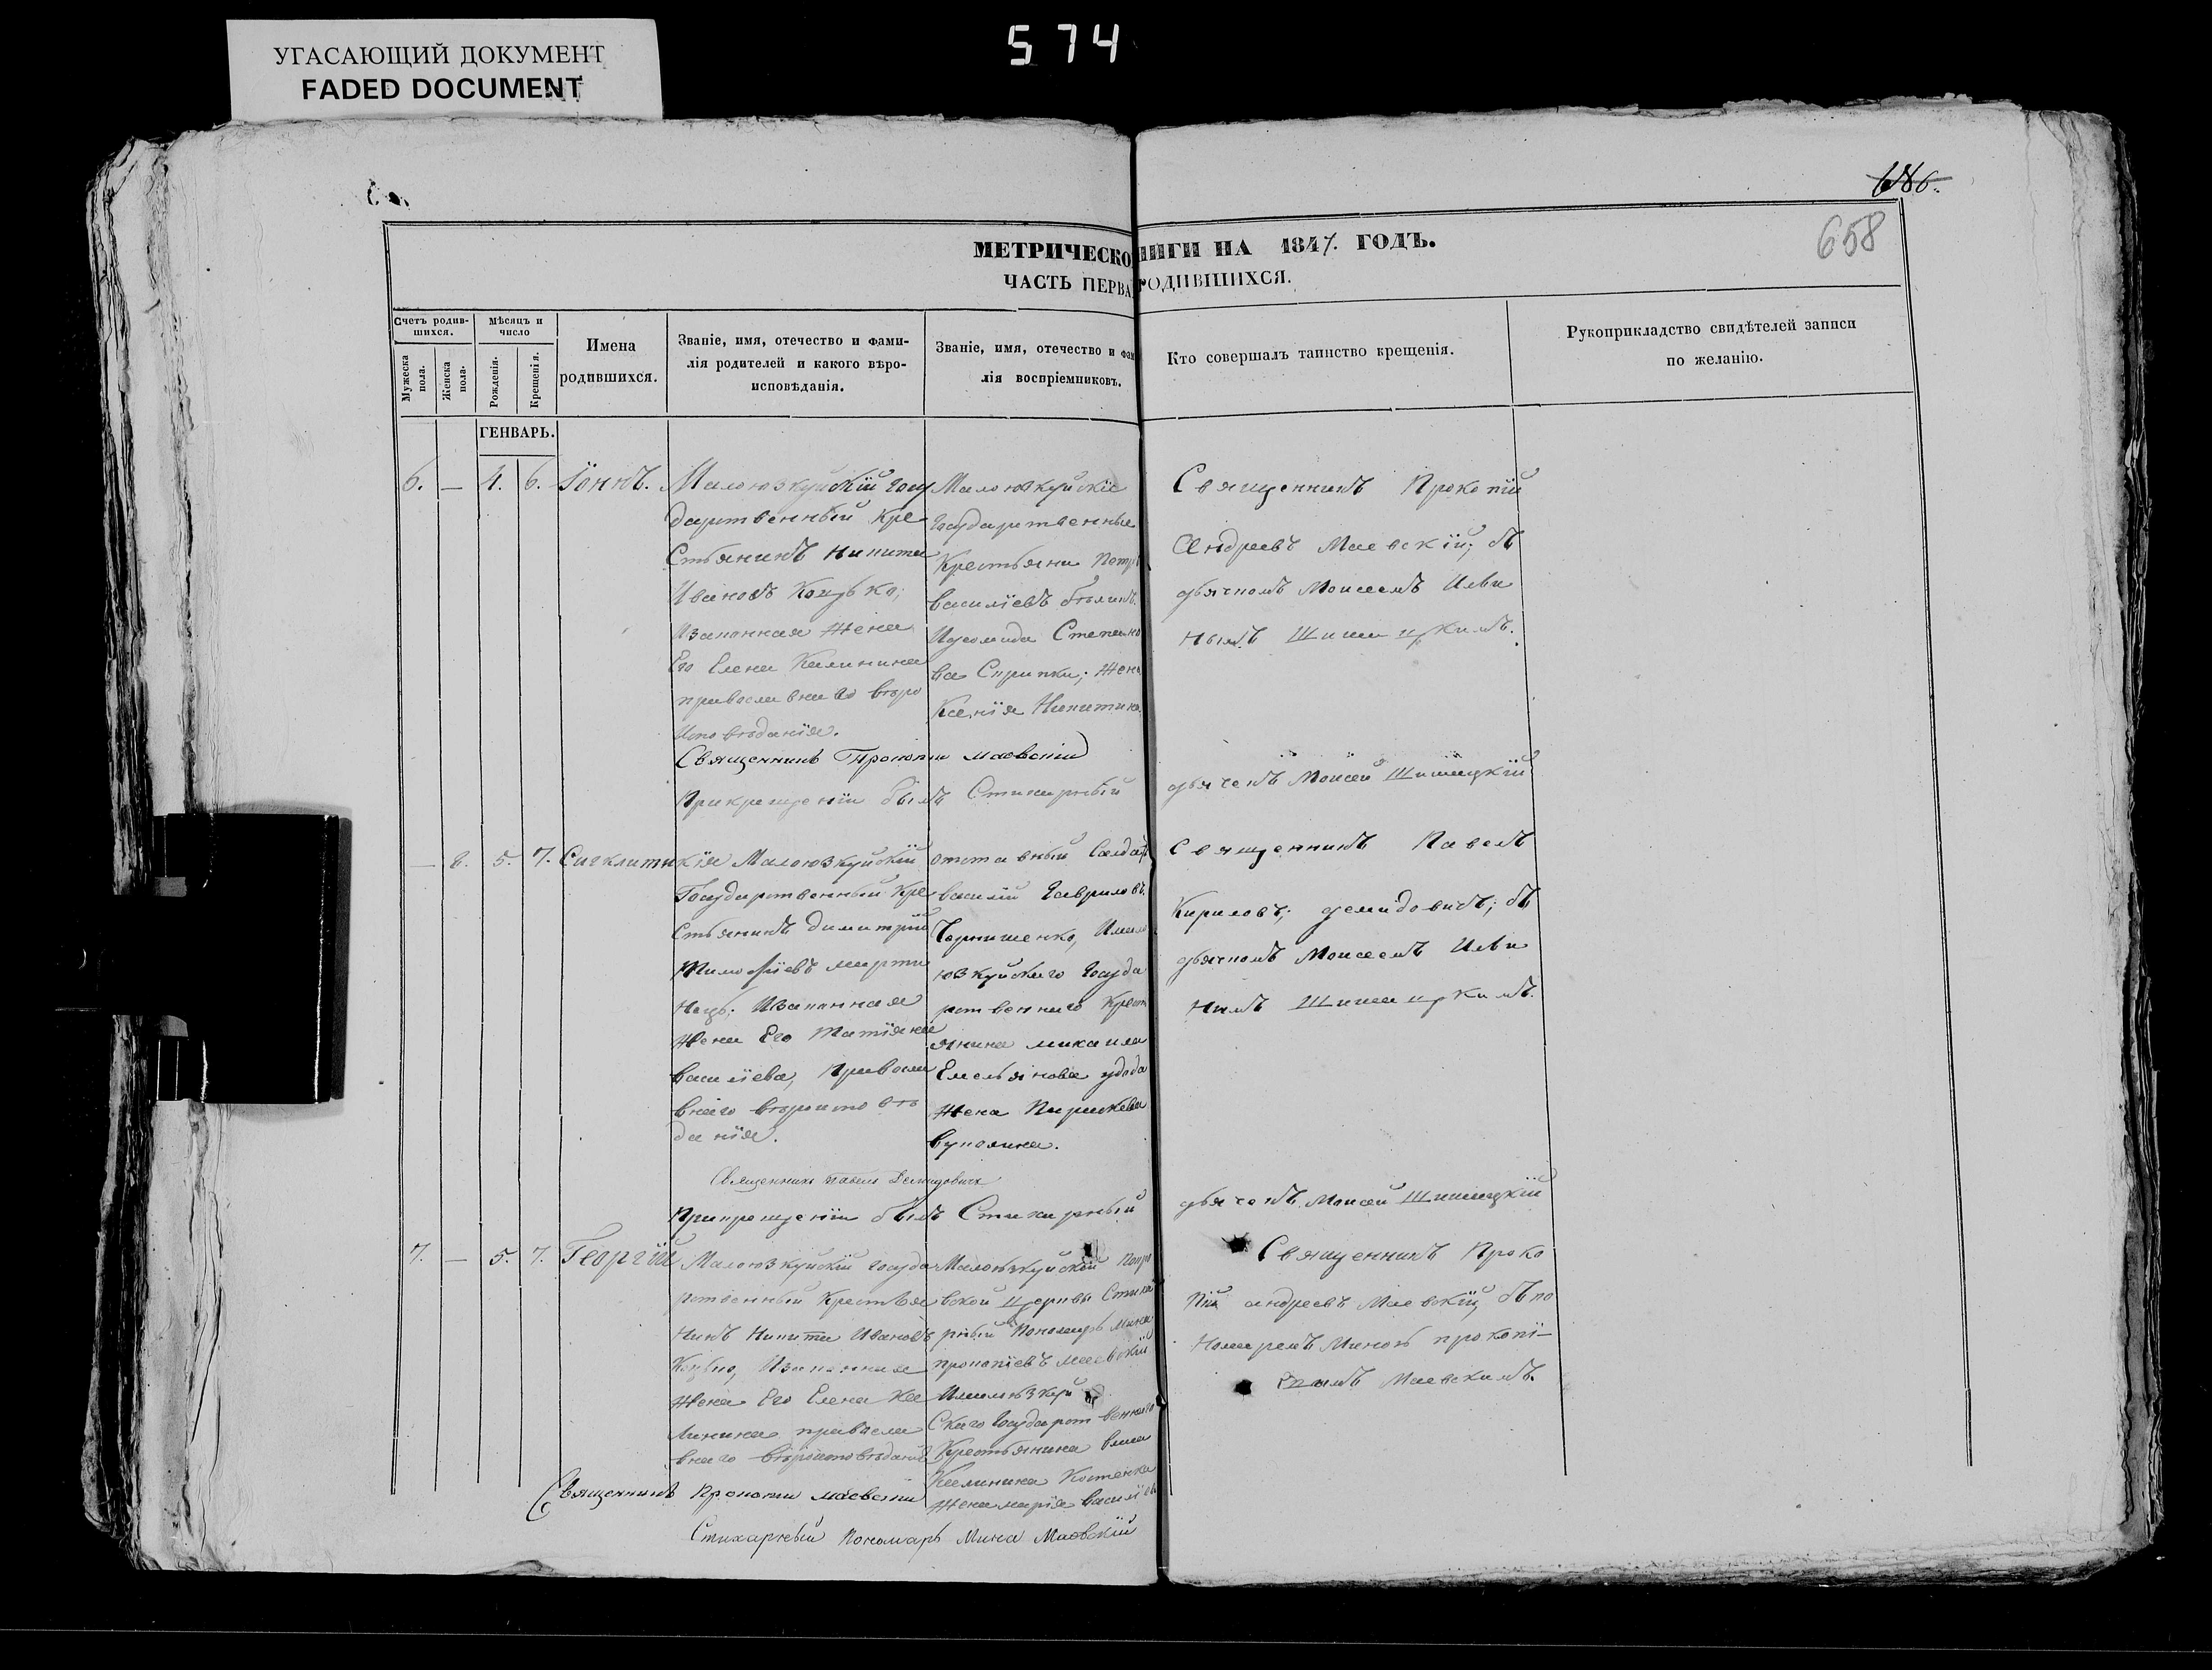 574
УГАСАЮЩИЙ ДОКУМЕНТ
FADED DOCUMENT
686.
658
МЕТРИЧЕСКО НИГИ НА 1847. ГОДЪ.
ЧАСТЬ ПЕРВА РОДИВШИХСЯ.
Счетъ родив-
шихся.
Мужеска
пола.
Женска
пола.
Мѣсяцъ и
число
Рожденія.
Крещенія.
Имена
родившихся.
Званіе, имя, отечество и фами-
лія родителей и какого вѣро-
исповѣданія.
Званіе, имя, отечество и фам
лія воспріемниковъ.
Кто совершалъ таинство крещенія.
Рукоприкладство свидѣтелей записи
по желанію.
ГЕНВАРЬ.
6. — 4. 6.
Малоюзкуйскій госу
дарственный кре
стьянинъ Никита
Ивановъ Коцько;
Изаконная жена
Его Елена Калинина
православнаго вѣро
исповѣданія.
Малоюзкуйскіе
государственные
крестьяни Петръ
василіевъ
Степано
ва Скрипки; жена
Ксенія Никитина.
Священникъ Прокопій
Андреевъ Маевскій; съ
дьячкомъ Моисеемъ Ильи
нымъ Шишацкимъ.
Священникъ Прокопій маевскій
Прикрещеніи былъ Стихарный
дьячекъ Моисей Шишацкій
— 8. 5. 7. Сигклитикія
Малоюзкуйскій
Государственный кре
стьянинъ Димитрій
Тимофіевъ марти
нецъ; Изаконная
жена Его Татіяна
василіева, Правосла
внаго вѣроисповѣ
данія.
отставный Салдатъ
василій Гавриловъ
Чернишенко, Имало
юзкуйскаго Госуда
рственнаго Крест
янина михаила
Емельянова удода
жена Параскева
вуколина.
Священникъ Павелъ
Кириловъ; демидовичъ; съ
дьячкомъ Моисеемъ Ильи
нимъ Шишацкимъ.
Священникъ Павелъ Демидовичъ
Прикрещеніи былъ Стихарный
дьячекъ Моисей Шишацкій
7. — 5. 7. Георгій
Малоюзкуйскій госуда
рственный крестья
нинъ Никита Ивановъ
Коцько, Изаконная
жена Его Елена Ка
линина православ
внаго вѣроисповѣданія
Малоюзкуйской Покро
вской Церквы Стиха
рный Пономарь Мина
прокопіевъ маевскій
Ималоюзкуй
Скаго Государственнаго
Крестьянина власа
Калинина Костенка
жена марія василіев
Священникъ Проко
пій андреевъ Маевскій, съ по
номаремъ Миною прокопі-
вымъ Маевскимъ.
Священникъ Прокопій маевскій
Стихарный Пономарь Мина Маевскій